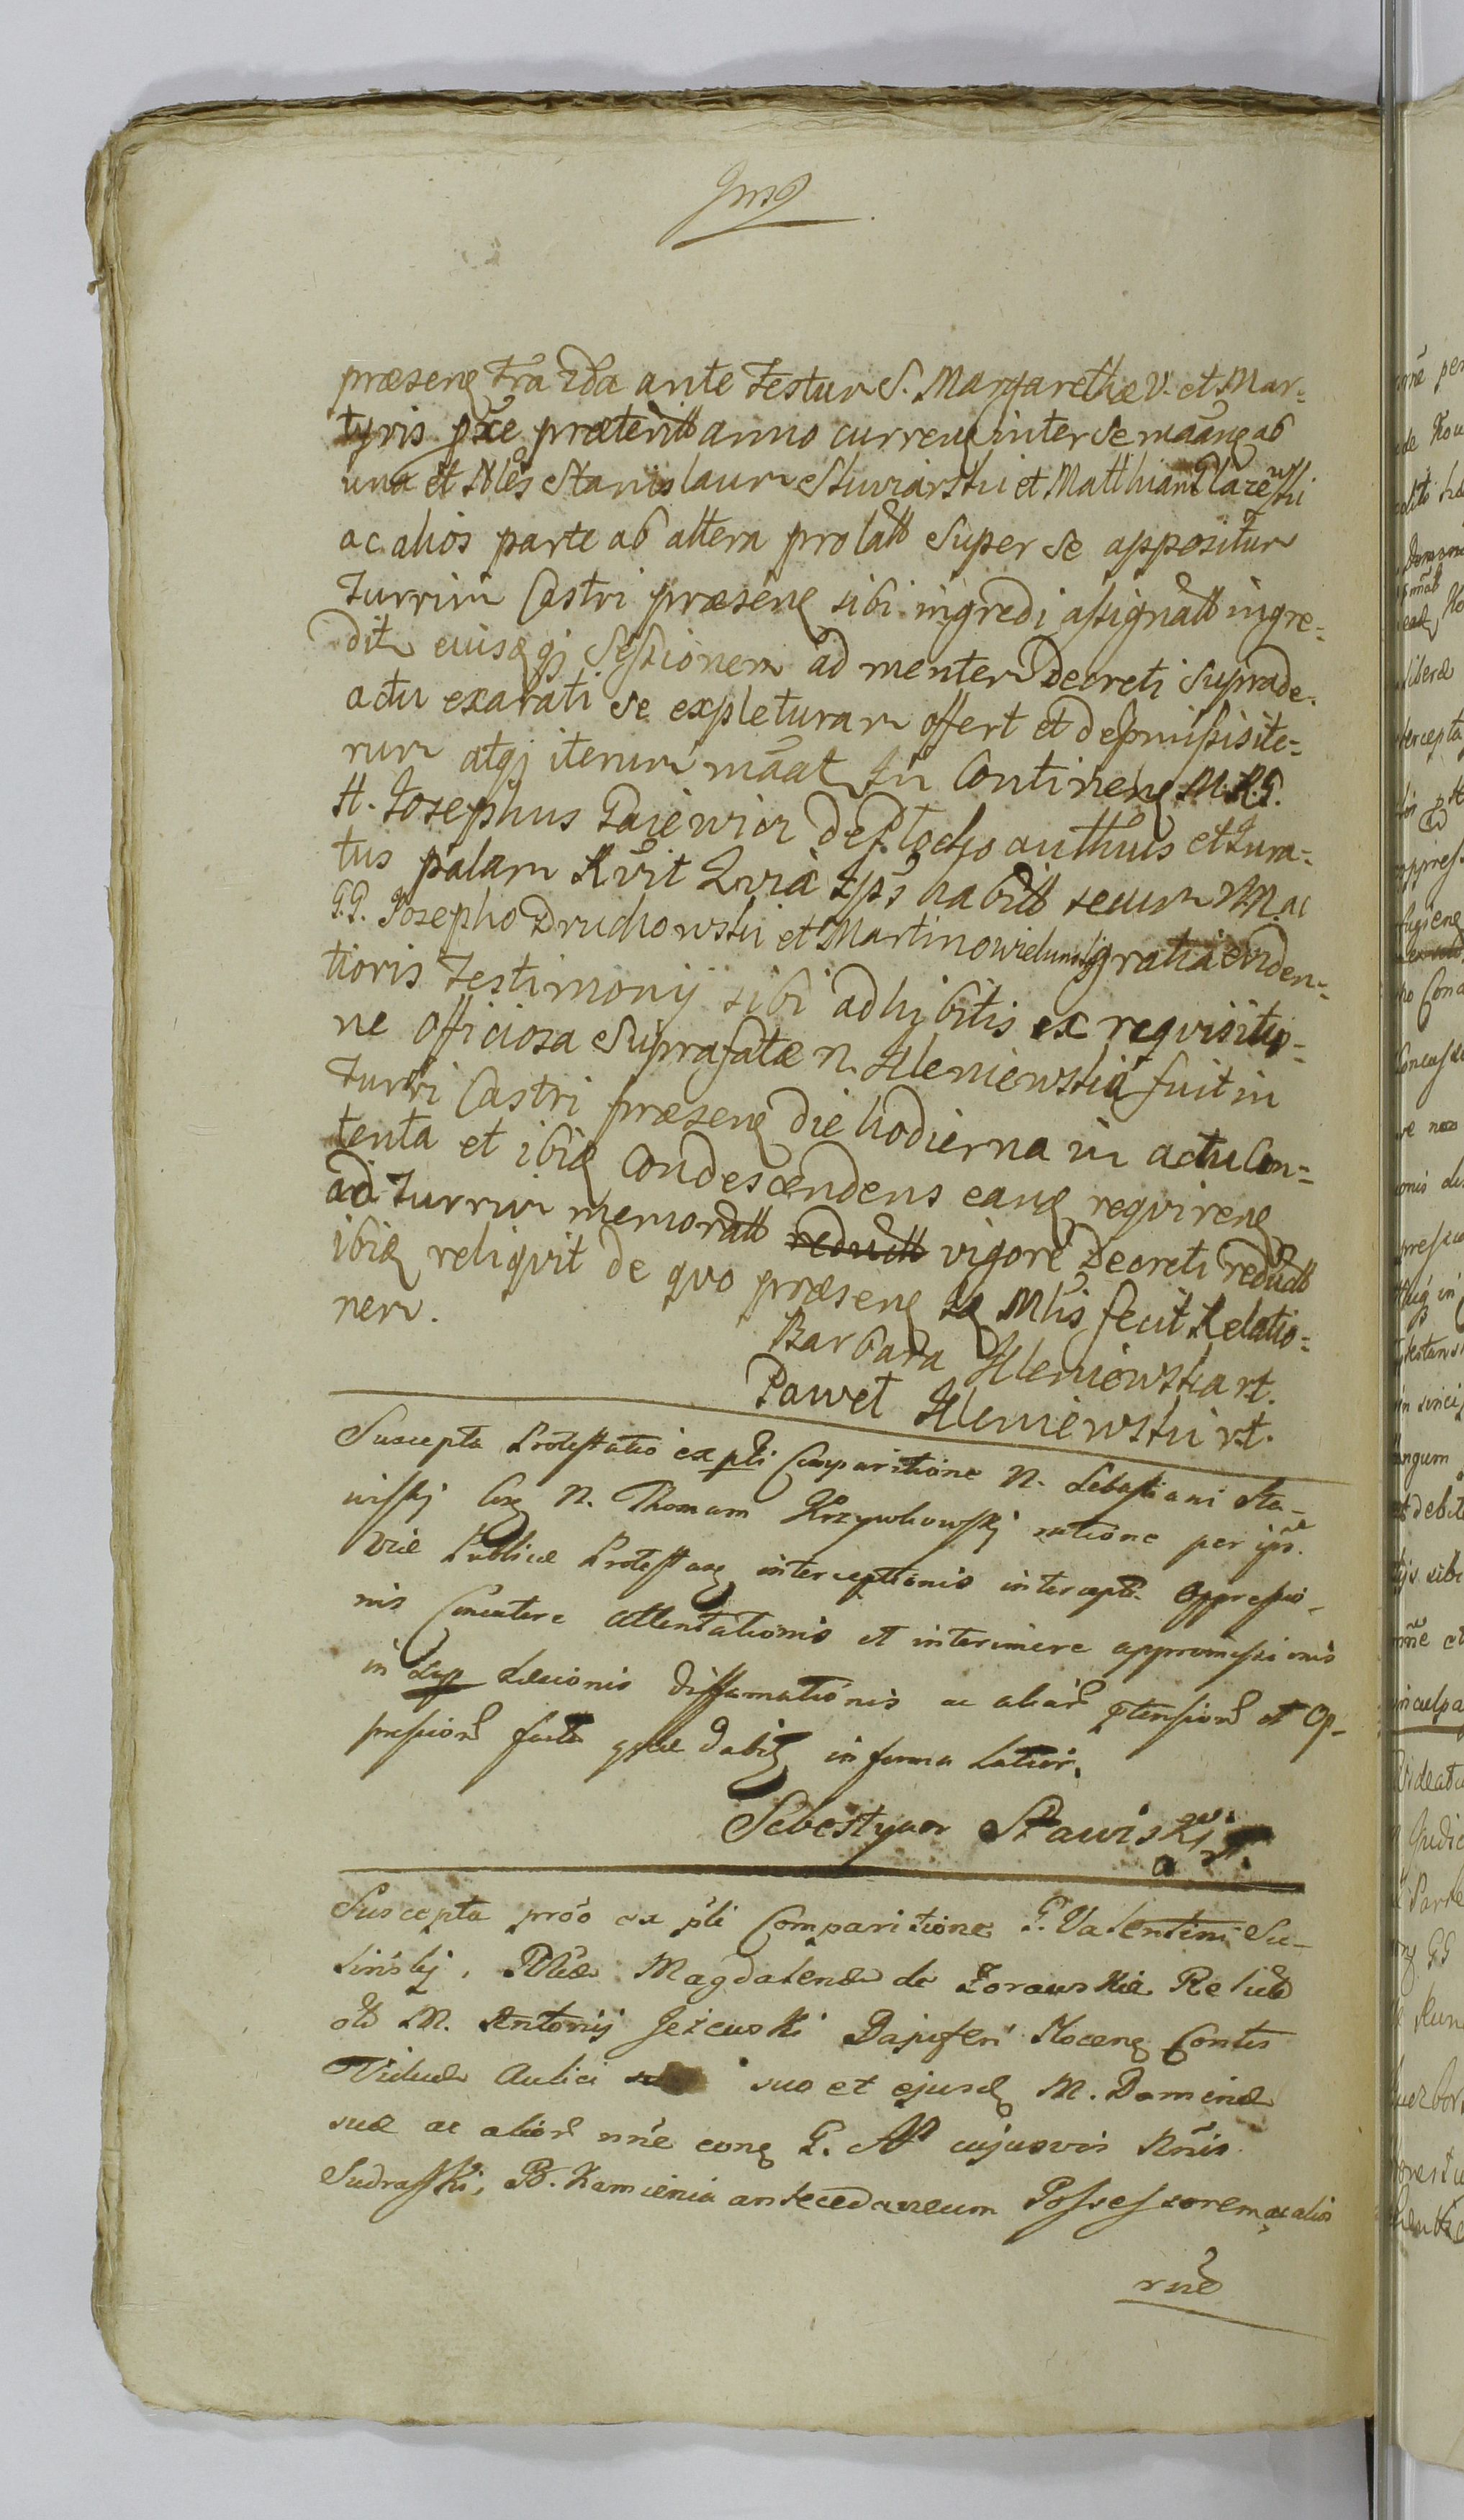 præsen Fra 2da ante Festum S. Margarethæ V. et Mar=
tyris pxe præterit anno curren inter se
una et Nles Stanislaum Skwiarski et Matthiam
ac alios parte ab altera prolatt super se appositum
Turrim Castri præsen sibi ingredi assignatt ingre=
dit eiusq Sessionem ad mentem Decreti supra de
actu exarati se expleturam offert et de præmissis ite=
rum atqj iterum maat In Continen M.R.G.
H. Josephus Gaiewicz de Plocko authus et Jura=
tus palam Rvit Qvia ips habitt secum NN. ac
G.G. Josepho Druchowski et Martino gratia eviden=
tioris Testimonij sibi adhibitis ex reqvisitio=
ne officiosa Suprafatæ N. Kleniewska fuit in
Turri Castri præsen die hodierna in actu Con=
tenta et ibid Condescendens eand reqviren
ad Turrim memoratt redutt vigore Decreti redutt
ibid reliqvit de qvo præsen Mlis fecit Relatio=
nem.
Barbara Kleniewska
Paweł Kleniewski
Suscepta Protestatio ex pti Comparitione N. Sebastiani Sta-
wiskj N. Thomam Krzywkowskj ratione per ips.
Viæ Publicæ Protestan interceptionis intercept. oppressio-
nis Concutere attentationis et interimere appromissionis
in Læsionis diffamationis ac aliar ptension et op-
pression fact quæ dabit in forma latior.
Sebestyan Stawiski
Suscepta prõo ex pti Comparitione G. Valentini Su-
lińskj, Magdalenæ de Zorawskie Relictæ
olo M. Antonij Jeżewski Dapiferi Kocen Contis
Viduæ Aulici suo et ejusd M. Dominæ
suæ ac alior nne con G. cujusvis Nnis
Sudraski, B. Kamienia antecedaneum Possessorem ac alios
rne